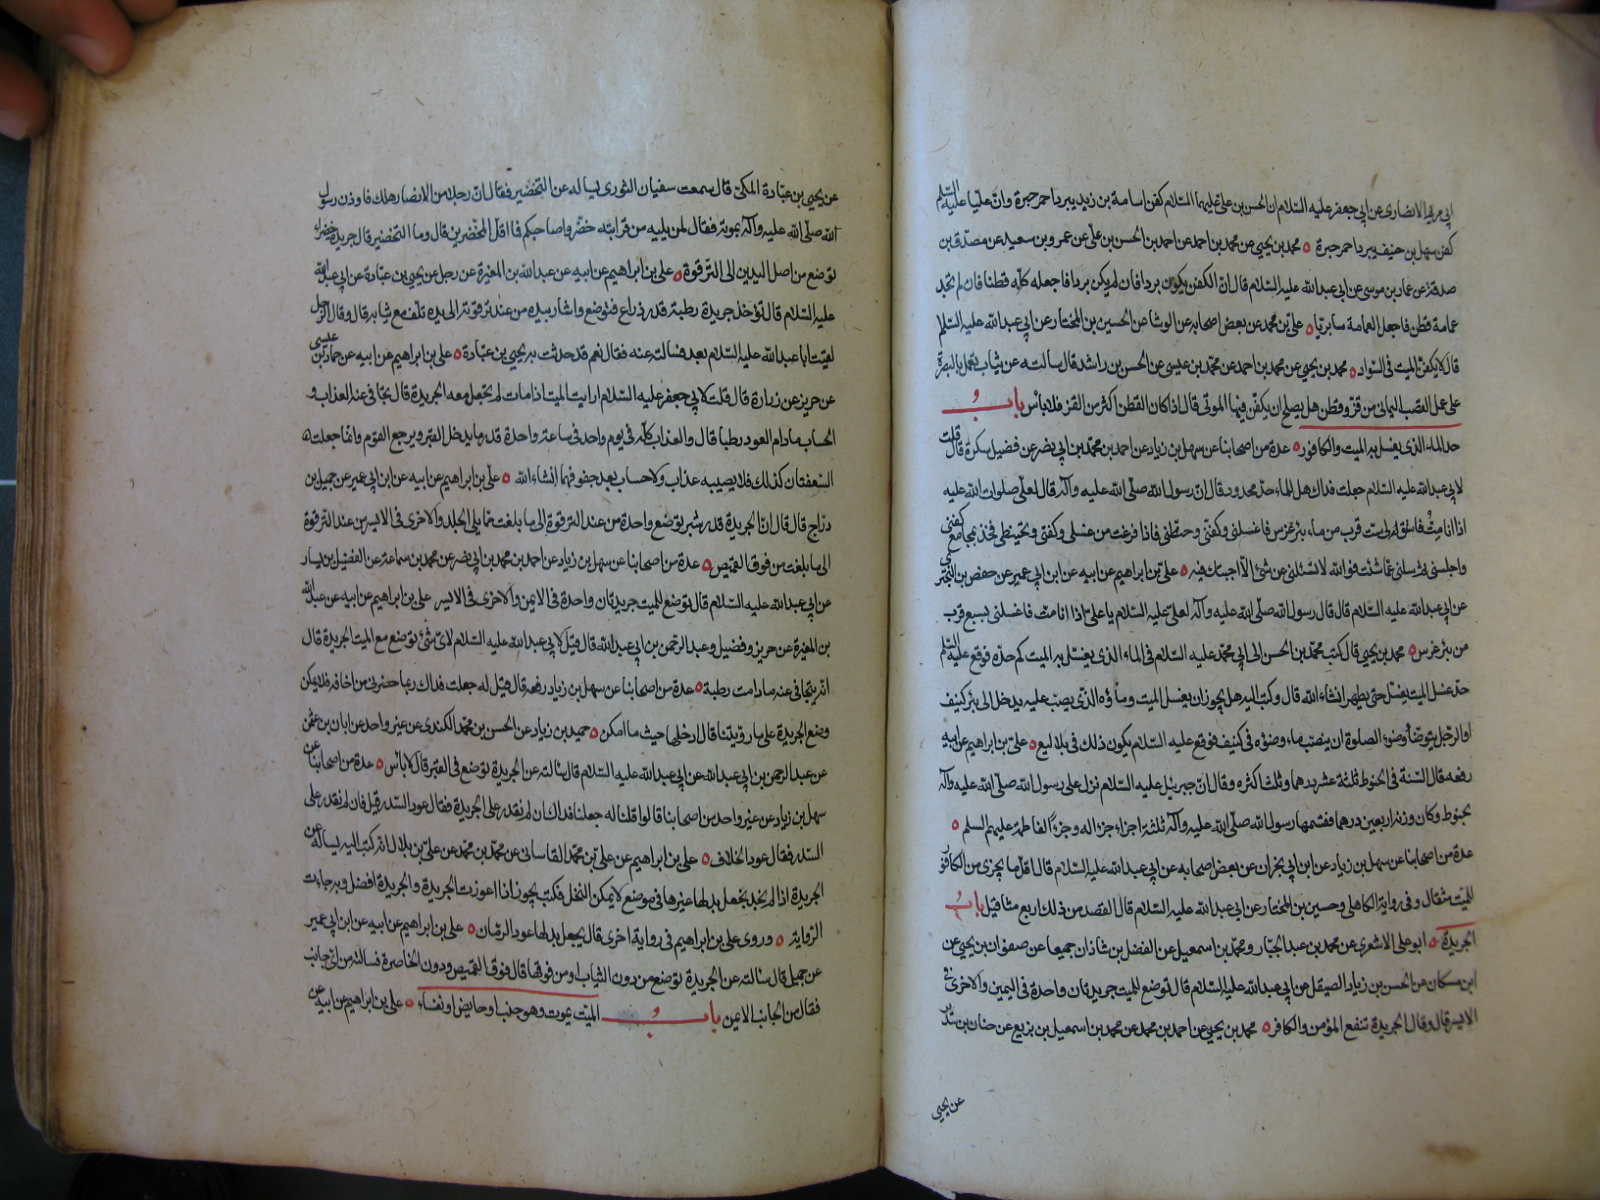 ابي مريم الانصاري عن ابي جعفر عليه السلام ان الحسن بن علي عليهما السلام كفن اسامة بن زيد ببرد احمر حبرة وان عليا عليه السلم
كفن سهل بن حنيف ببرد احمر حبرة محمد بن يحيى عن محمد بن احمد عن احمد بن الحسن بن علي عن عمرو بن سعيد عن مصدق بن
صدقة عن عمار بن موسى عن ابي عبد الله عليه السلام قال ان الكفن يكون بردا فان لم يكن بردا فاجعله كله قطنا فان لم تجد
عمامة قطن فاجعل العمامة سابريا علي بن محمد عن بعض اصحابه عن الوشا عن الحسين بن المختار عن ابي عبد الله عليه السلم
قال لا يكفن الميت في السواد محمد بن يحيى عن محمد بن احمد عن محمد بن عيسى عن الحسن بن راشد قال سالته عن ثياب تعمل بالبصرة
على عمل القصب اليماني من قز وقطن هل يصلح ان يكفن فيها الموتى قال اذا كان القطن اكثر من القز فلا باس باب
حد الماء الذي يغسل به الميت والكافور عدة من اصحابنا عن سهل بن زياد عن احمد بن محمد بن ابي نصر عن فضيل سكرة قال قلت
لابي عبد الله عليه السلام جعلت فداك هل للماء حد محدود قال ان رسول الله صلى الله عليه وآله قال لعلي صلوات الله عليه
اذا انا مت فاستق لي ست قرب من ماء بئر غرس فاغسلني وكفني وحنطني فاذا فرغت من غسلي وكفني وتحنيطي فخذ بمجامع كفني
واجلسني ثم سلني عما شئت فوالله لا تسئلني عن شئ الا اجبتك فيه علي بن ابراهيم عن ابيه عن ابن ابي عمير عن حفص بن البختري
عن ابي عبد الله عليه السلام قال قال رسول الله صلى الله عليه وآله لعلي عليه السلام يا علي اذا انا مت فاغسلني بسبع قرب
من بئر غرس محمد بن يحيى قال كتب محمد بن الحسن الى ابي محمد عليه السلام في الماء الذي يغسل به الميت كم حده فوقع عليه السلم
حد غسل الميت يغسل حتى يطهر انشاء الله قال وكتب اليه هل يجوز ان يغسل الميت وماؤه الذي يصب عليه يدخل الى بئر كنيف
او الرجل يتوضأ وضوء الصلوة ان ينصب ماء وضوءه في كنيف فوقع عليه السلام يكون ذلك في بلاليع علي بن ابراهيم عن ابيه
رفعه قال السنة في الحنوط ثلثة عشر درهما وثلث اكثره وقال ان جبرئيل عليه السلام نزل على رسول الله صلى الله عليه وآله
بحنوط وكان وزنه اربعين درهما فقسمها رسول الله صلى الله عليه وآله ثلثة اجزاء جزء له وجزء لفاطمة عليهم السلم
عدة من اصحابنا عن سهل بن زياد عن ابن ابي نجران عن بعض اصحابه عن ابي عبد الله عليه السلام قال اقل ما يجزي من الكافور
للميت مثقال وفي رواية الكاهلي وحسين بن المختار عن ابي عبد الله عليه السلام قال القصد من ذلك اربع مثاقيل باب
الجريدة ابو علي الاشعري عن محمد بن عبد الجبار ومحمد بن اسمعيل عن الفضل بن شاذان جميعا عن صفوان بن يحيى عن
ابن مسكان عن الحسن بن زياد الصيقل عن ابي عبد الله عليه السلام قال توضع للميت جريدتان واحدة في اليمين والاخرى في
الايسر قال وقال الجريدة تنفع المؤمن والكافر محمد بن يحيى عن احمد بن محمد عن محمد بن اسمعيل بن بزيع عن حنان بن سدير
عن يحيى
عن يحيى بن عبادة المكي قال سمعت سفيان الثوري يساله عن التخضير فقال ان رجلا من الانصار هلك فاوذن رسول
الله صلى الله عليه وآله بموته فقال لمن يليه من قرابته خضروا صاحبكم فما اقل المخضرين قال وما التخضير قال جريدة خضراء
توضع من اصل اليدين الى الترقوة علي بن ابراهيم عن ابيه عن عبد الله بن المغيرة عن رجل عن يحيى بن عبادة عن ابي عبد الله
عليه السلام قال تؤخذ جريدة رطبة قدر ذراع فتوضع واشار بيده من عند ترقوته الى يده تلف مع ثيابه قال وقال الرجل
لقيت ابا عبد الله عليه السلام بعد فسالته عنه فقال نعم قد حدثت به يحيى بن عبادة علي بن ابراهيم عن ابيه عن حماد بن عيسى
عن حريز عن زرارة قال قلت لابي جعفر عليه السلام ارايت الميت اذا مات لم تجعل معه الجريدة قال يجافي عنه العذاب و
الحساب ما دام العود رطبا قال والعذاب كله في يوم واحد في ساعة واحدة قدر ما يدخل القبر ويرجع القوم وانما جعلت
السعفتان كذلك فلا يصيبه عذاب ولا حساب بعد جفوفهما انشاء الله علي بن ابراهيم عن ابيه عن ابن ابي عمير عن جميل بن
دراج قال قال ان الجريدة قدر شبر توضع واحدة من عند الترقوة الى ما بلغت مما يلي الجلد والاخرى في الايسر من عند الترقوة
الى ما بلغت من فوق القميص عدة من اصحابنا عن سهل بن زياد عن احمد بن محمد بن ابي نصر عن محمد بن سماعة عن الفضيل بن يسار
عن ابي عبد الله عليه السلام قال توضع للميت جريدتان واحدة في الايمن والاخرى في الايسر علي بن ابراهيم عن ابيه عن عبد الله
بن المغيرة عن حريز وفضيل وعبد الرحمن بن ابي عبد الله قال قيل لابي عبد الله عليه السلام لاي شئ توضع مع الميت الجريدة قال
انه يتجافى عنه ما دامت رطبة عدة من اصحابنا عن سهل بن زياد رفعه قال قيل له جعلت فداك ربما حضرني من اخافه فلا يمكن
وضع الجريدة على ما رويتنا قال ادخلها حيث ما امكن حميد بن زياد عن الحسن بن محمد الكندي عن غير واحد عن ابان بن عثمن
عن عبد الرحمن بن ابي عبد الله عن ابي عبد الله عليه السلام قال سالته عن الجريدة توضع في القبر قال لا باس عدة من اصحابنا عن
سهل بن زياد عن غير واحد من اصحابنا قالوا قلنا له جعلنا فداك ان لم نقدر على الجريدة فقال عود السدر قيل فان لم نقدر على
السدر فقال عود الخلاف علي بن ابراهيم عن علي بن محمد القاساني عن محمد بن محمد عن علي بن بلال انه كتب اليه يساله عن
الجريدة اذا لم يجد يجعل بدلها غيرها في موضع لا يمكن النخل فكتب يجوز اذا اعوزت الجريدة والجريدة افضل وبه جاءت
الرواية وروى علي بن ابراهيم في رواية اخرى قال يجعل بدلها عود الرمان علي بن ابراهيم عن ابيه عن ابن ابي عمير
عن جميل قال سالته عن الجريدة توضع من دون الثياب او من فوقها قال فوق القميص ودون الخاصرة فسالته من اي جانب
فقال من الجانب الايمن باب الميت يموت وهو جنب او حايض او نفساء علي بن ابراهيم عن ابيه عن